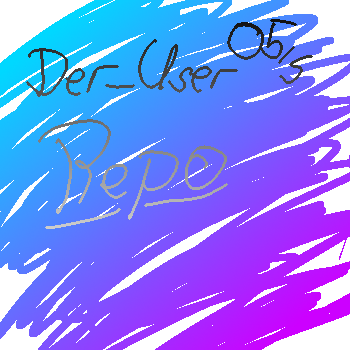 Der_User05's
Repo